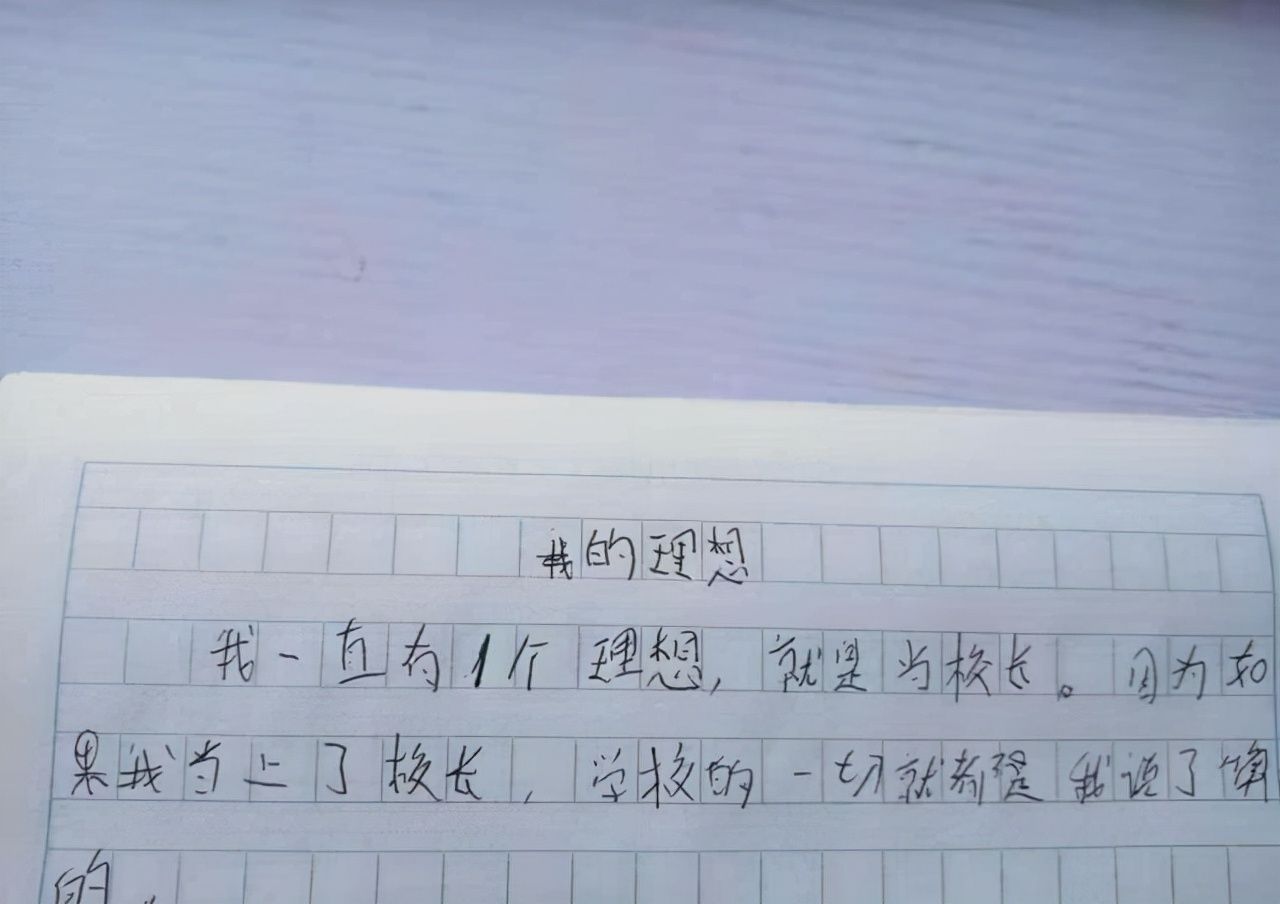 我的理想
我一直有1个理想,就是当校长。因为如
果我当上了校长,学校的一切就都是我说了算
的.